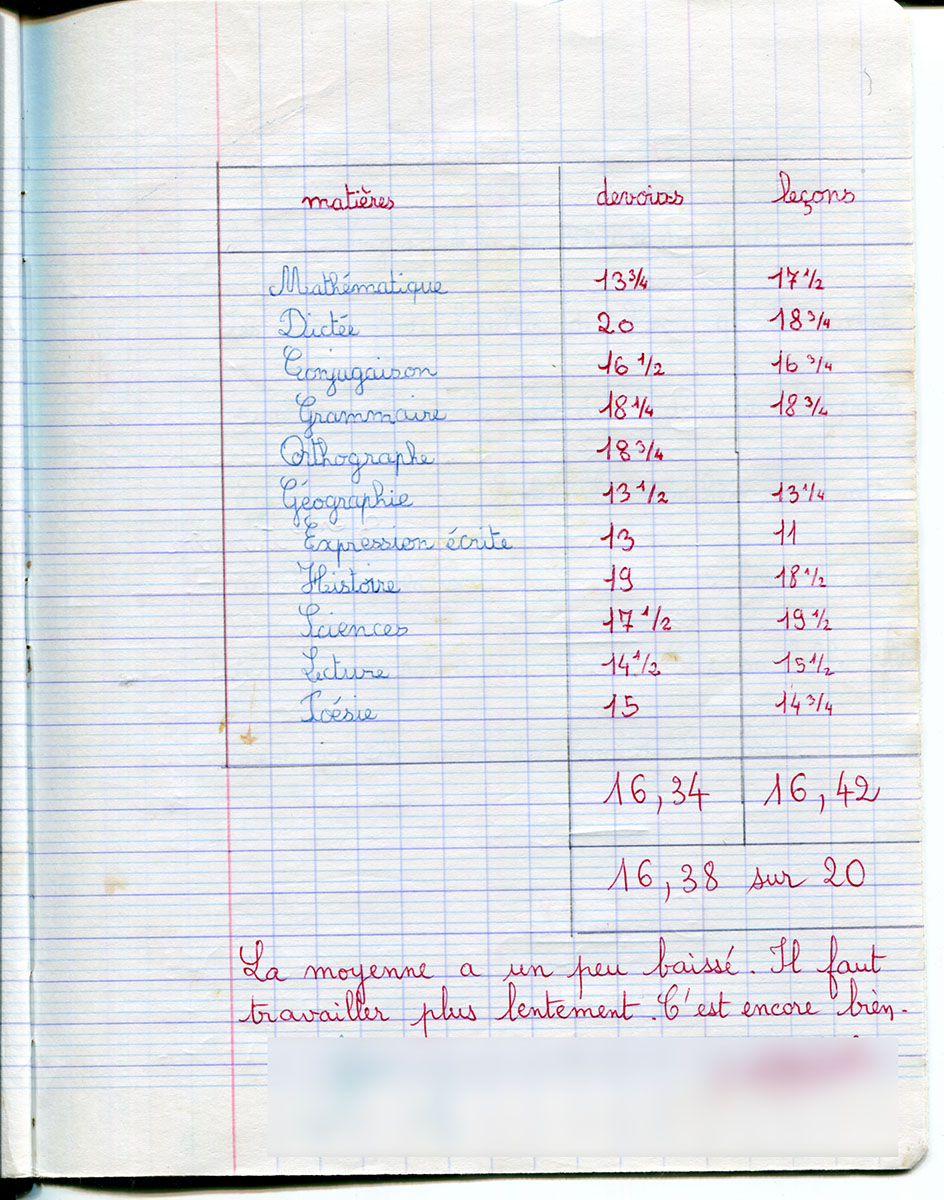 matières devoirs leçons
Mathématique 13 3/4 17 1/2
Dictée 20 18 3/4
Conjugaison 16 1/2 16 3/4
Grammaire 18 1/4 18 3/4
Orthographe 18 3/4
Géographie 13 1/2 13 1/4
Expression écrite 13 11
Histoire 19 18 1/2
Sciences 17 1/2 19 1/2
Lecture 14 1/2 15 1/2
Poésie 15 14 3/4
16,34 16,42
16,38 sur 20
La moyenne a un peu baissé. Il faut
travailler plus lentement. C'est encore bien.